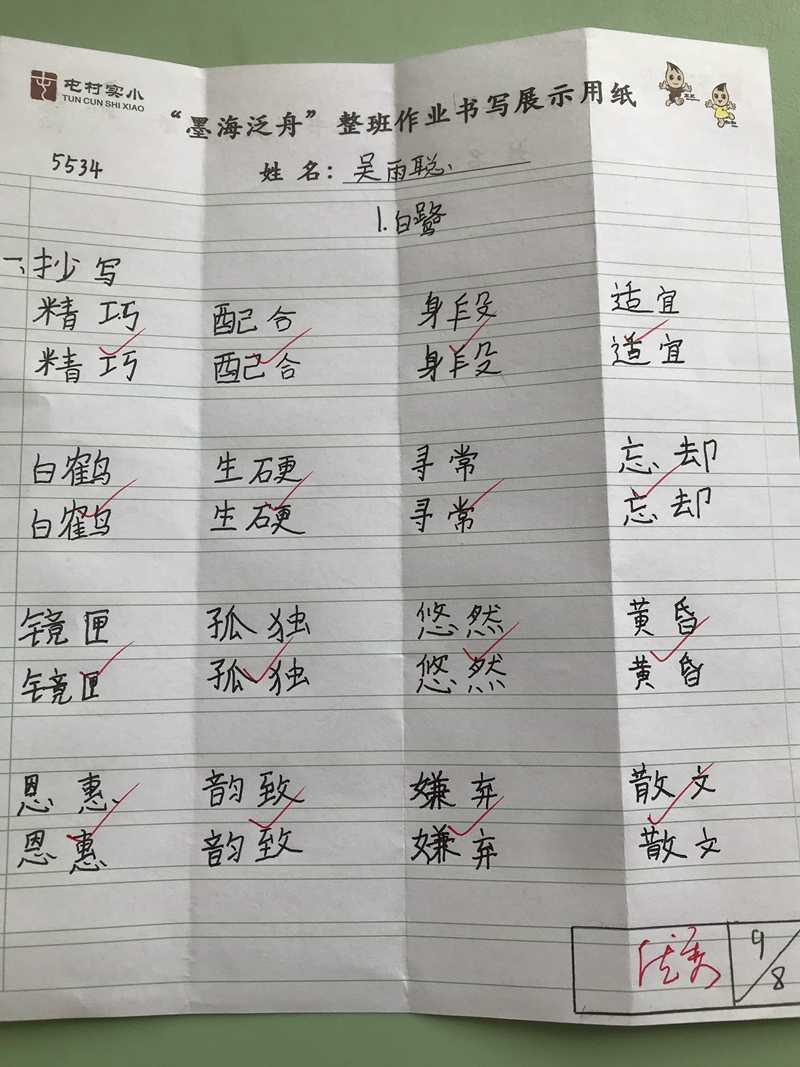 屯村实小
TUN CUN SHI XIAO
“墨海泛舟”整班作业书写展示用纸
5534 姓名：吴雨聪
1.白鹭
一、抄写
精巧 配合 身段 适宜
精巧 配合 身段 适宜
白鹤 生硬 寻常 忘却
白鹤 生硬 寻常 忘却
镜匣 孤独 悠然 黄昏
镜匣 孤独 悠然 黄昏
恩惠 韵致 嫌弃 散文
恩惠 韵致 嫌弃 散文
优秀 9/8